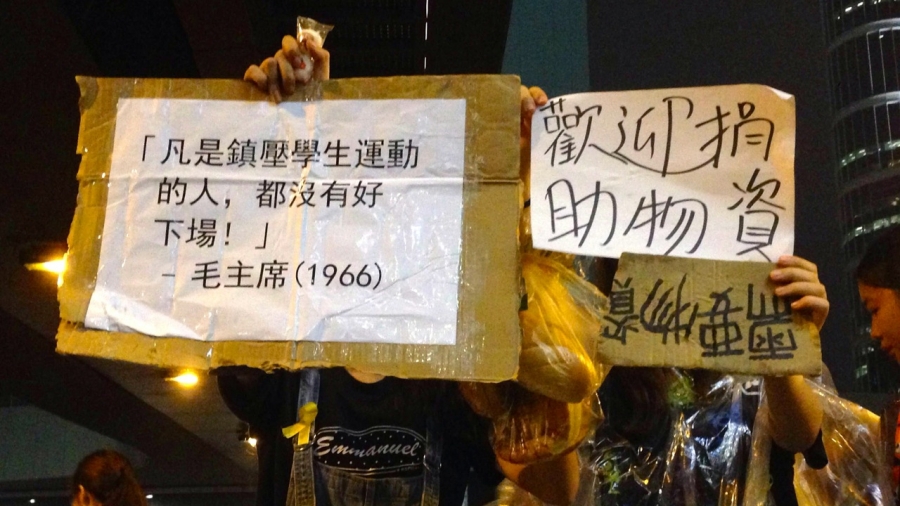 「凡是鎮壓學生運動
的人，都沒有好
下場！」
- 毛主席(1966)
歡迎捐
助物資
需要物資
Emmanuel